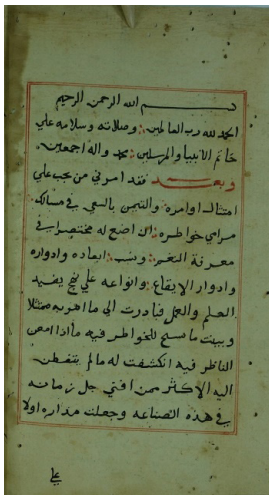 بسم الله الرحمن الرحيم
الحمد لله رب العالمين وصلاته وسلامه علي
خاتم الانبيا والمرسلين محمد واله اجمعين
وبعد فقد امرني من يجب علي
امتثال اوامره والتيمن بالسعي في مسالك
مرامي خواطره ان اضع له مختصرا في
معرفة النغم ونسب ابعاده وادواره
وادوار الايقاع وانواعه علي نهج يفيد
العلم والعمل فبادرت الي ما امر به ممتثلا
وبينت ما سنح للخواطر فيه ما اذا امعن
الناظر فيه انكشفت له ما لم يتفطن
اليه الاكثر ممن افني جل زمانه
في هذه الصناعه وجعلت مداره اولا
علي